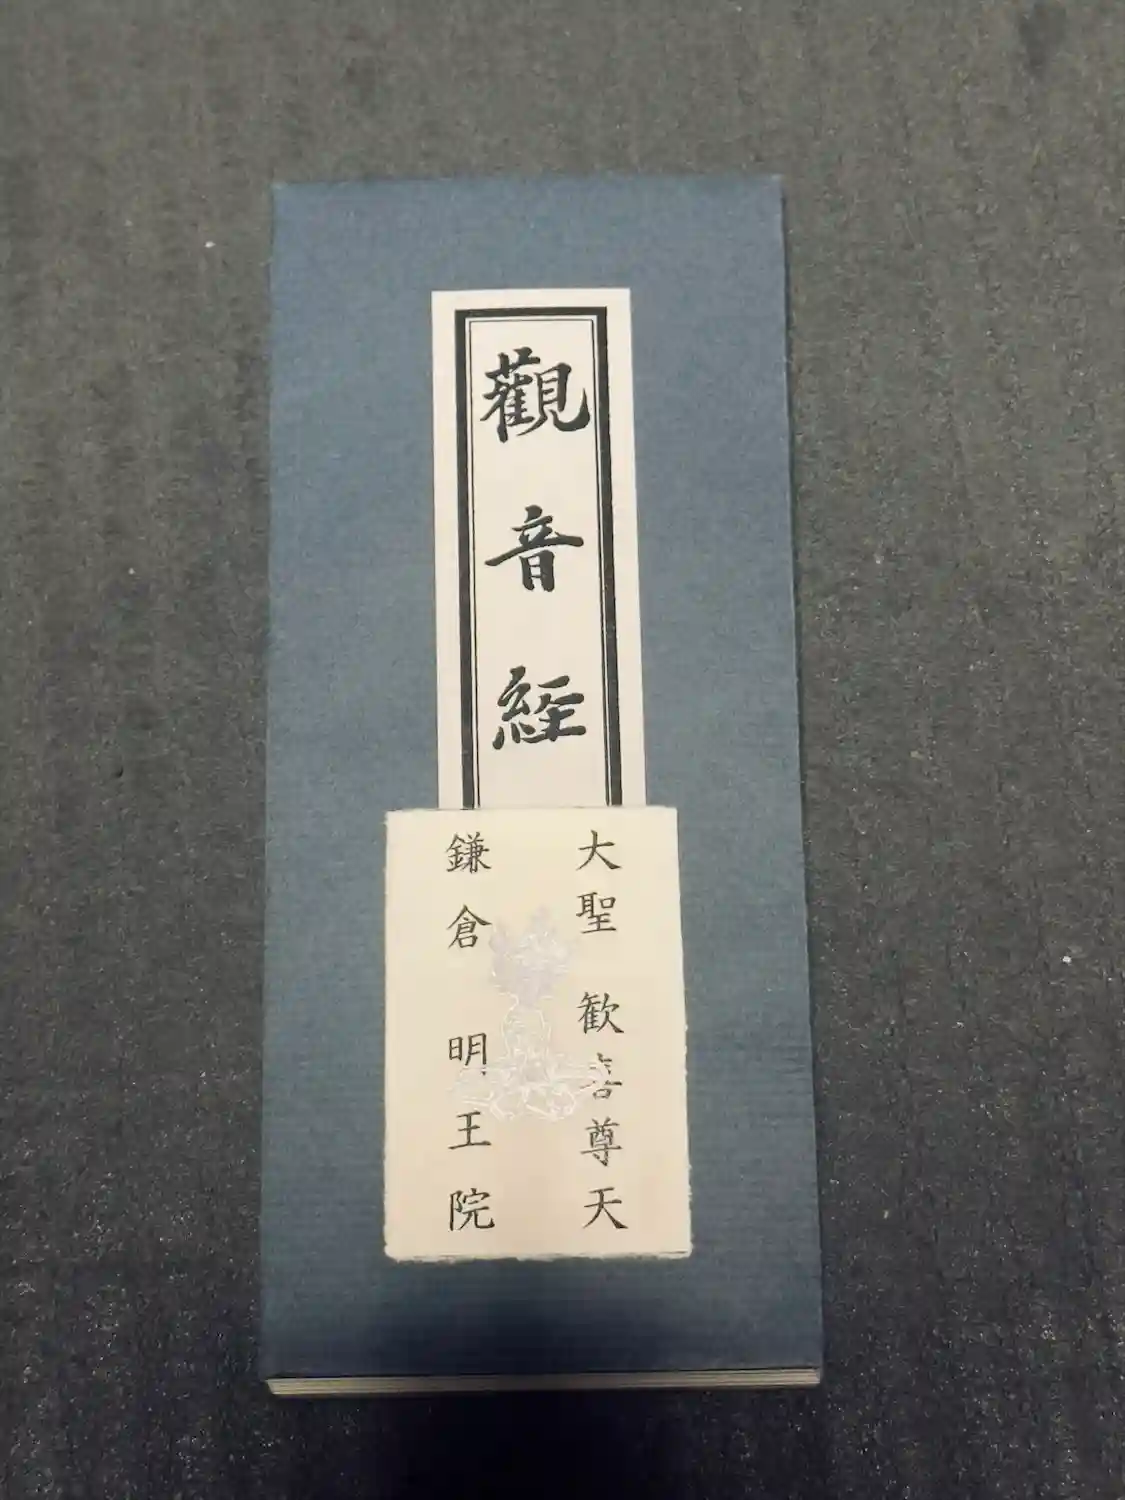 觀音経
大聖 歓喜尊天
鎌倉 明王院